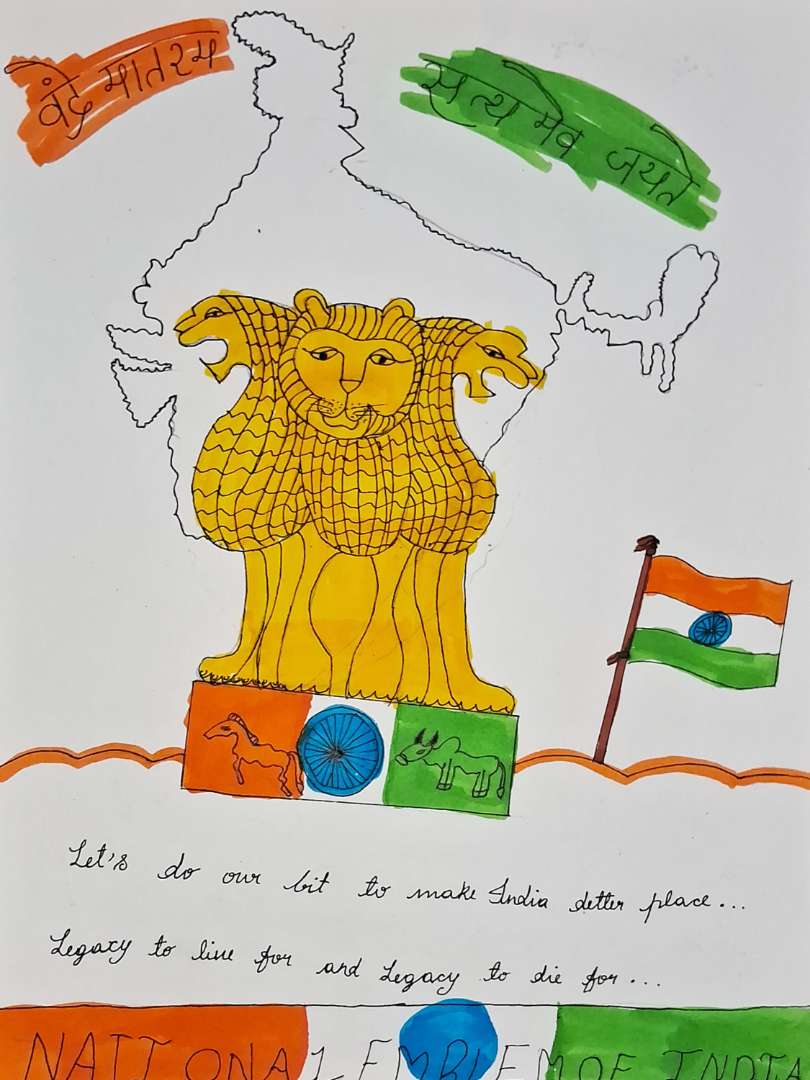 वंदे मातरम
सत्यमेव जयते
Let's do our bit to make India detter place...
Legacy to live for and Legacy to die for...
NATIONAL EMBLEM OF INDIA